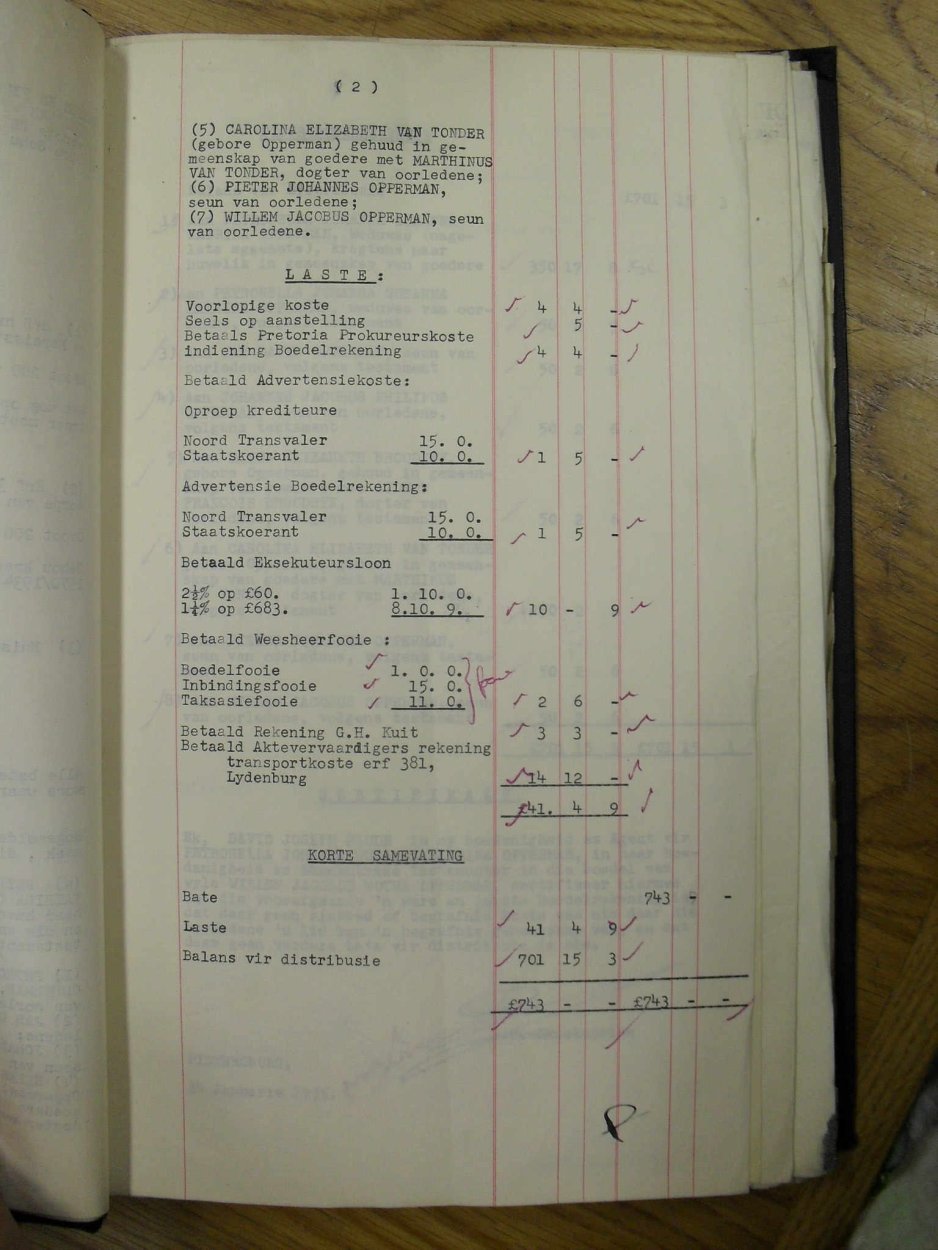 ( 2 )
(5) CAROLINA ELIZABETH VAN TONDER
(gebore Opperman) gehuud in ge-
meenskap van goedere met MARTHINUS
VAN TONDER, dogter van oorledene;
(6) PIETER JOHANNES OPPERMAN,
seun van oorledene;
(7) WILLEM JACOBUS OPPERMAN, seun
van oorledene.
L A S T E :
Voorlopige koste 4 4 -
Seels op aanstelling 5 -
Betaals Pretoria Prokureurskoste
indiening Boedelrekening 4 4 -
Betaald Advertensiekoste:
Oproep krediteure
Noord Transvaler 15. 0.
Staatskoerant 10. 0. 1 5 -
Advertensie Boedelrekening:
Noord Transvaler 15. 0.
Staatskoerant 10. 0. 1 5 -
Betaald Eksekuteursloon
2½% op £60. 1. 10. 0.
1¼% op £683. 8.10. 9. 10 - 9
Betaald Weesheerfooie :
Boedelfooie 1. 0. 0.
Inbindingsfooie 15. 0.
Taksasiefooie 11. 0. 2 6 -
Betaald Rekening G.H. Kuit 3 3 -
Betaald Aktevervaardigers rekening
transportkoste erf 381,
Lydenburg 14 12 -
£41. 4 9
KORTE SAMEVATING
Bate 743 - -
Laste 41 4 9
Balans vir distribusie 701 15 3
£743 - - £743 - -